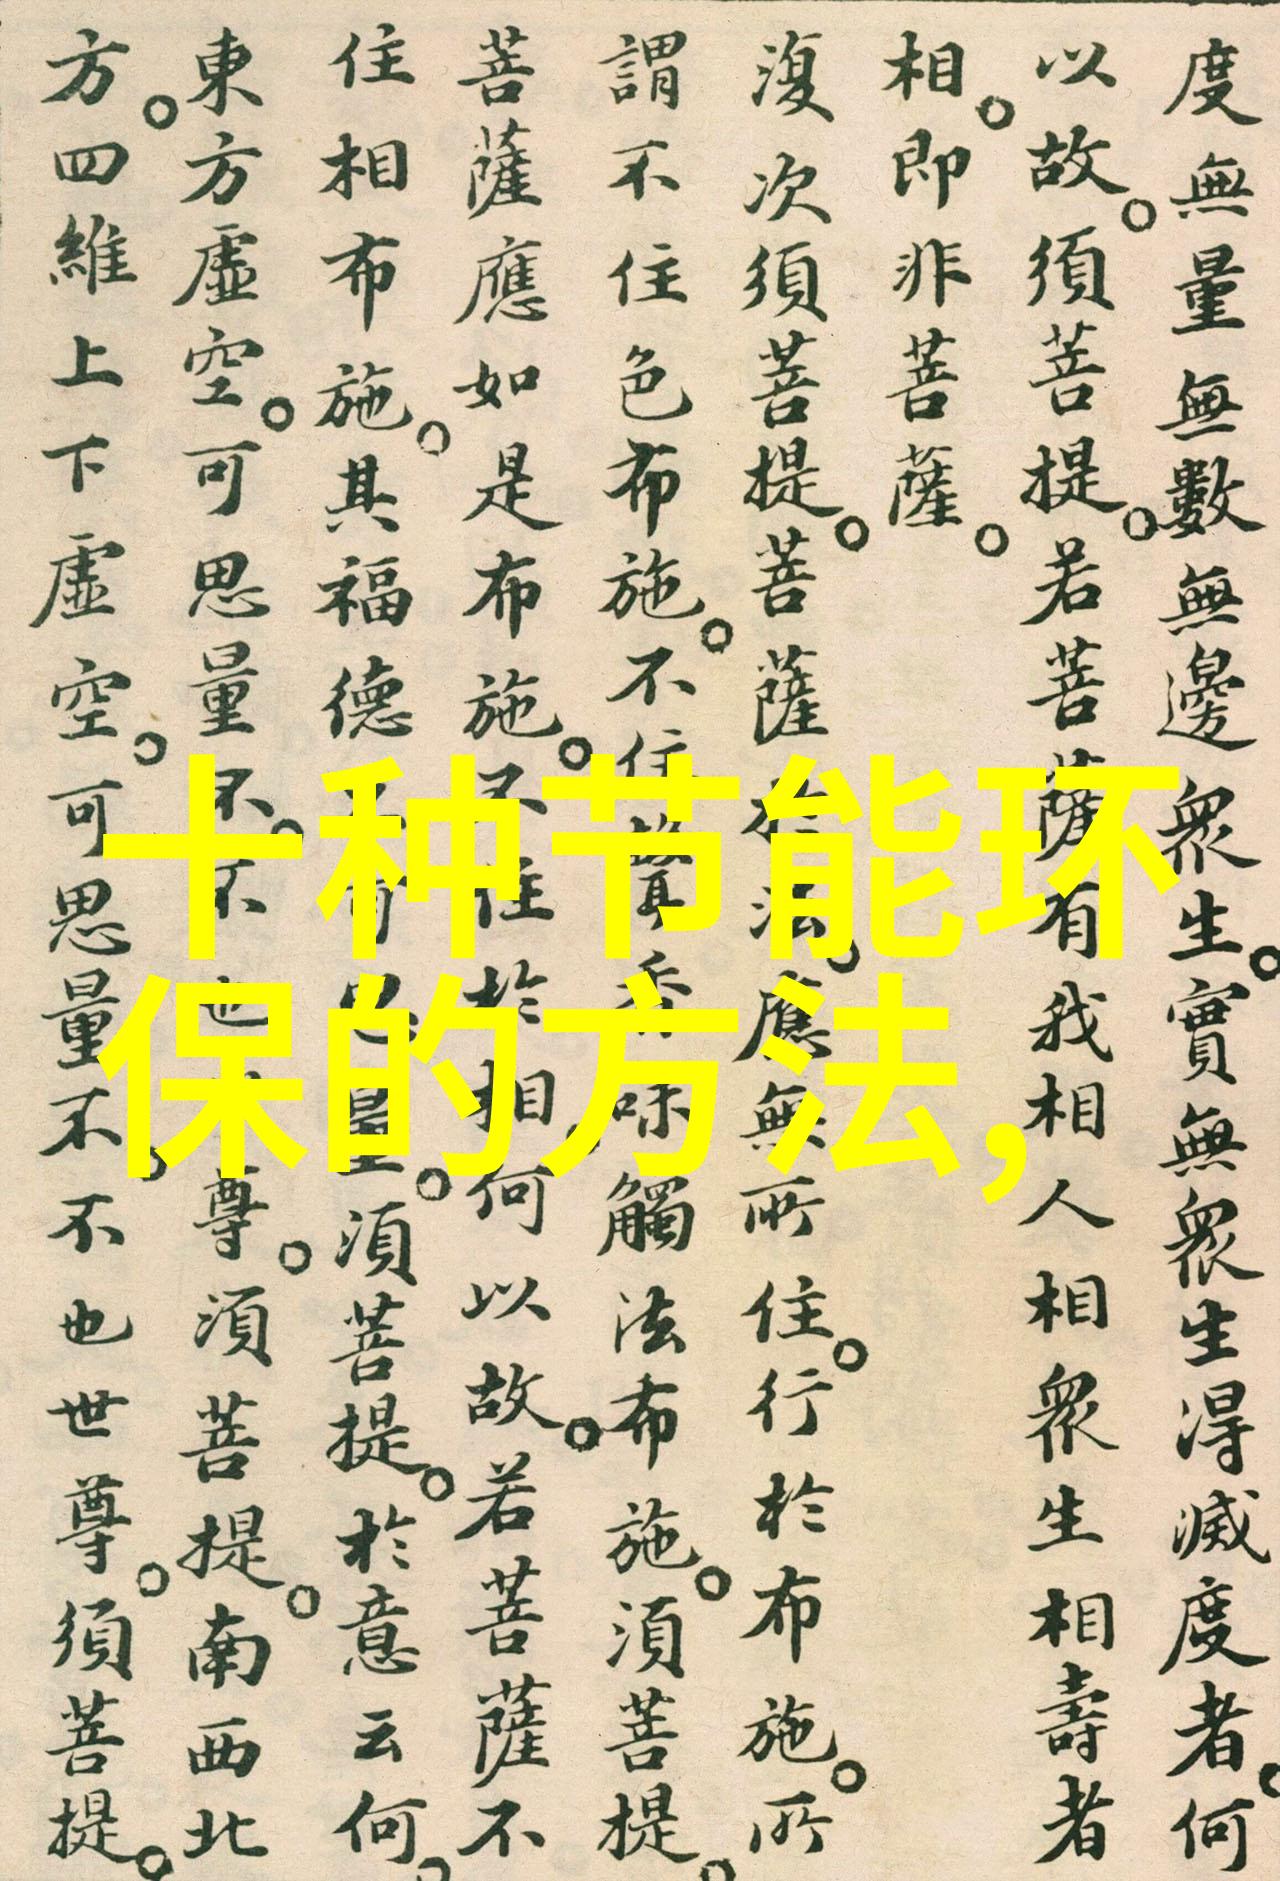 度無量無數無邊眾生。實無眾生得滅度者。何
以故。須菩提。若菩薩有我相人相眾生相壽者
相。即非菩薩。
復次須菩提。菩薩於法。應無所住。行於布施。所
謂不住色布施。不住聲香味觸法布施。須菩提。
菩薩應如是布施。不住於相。何以故。若菩薩不
住相布施。其福德不可思量。須菩提。於意云何。
東方虛空。可思量不。不也世尊。須菩提。南西北
方。四維上下虛空。可思量不。不也世尊。須菩提。
十种节能环
保的方法,